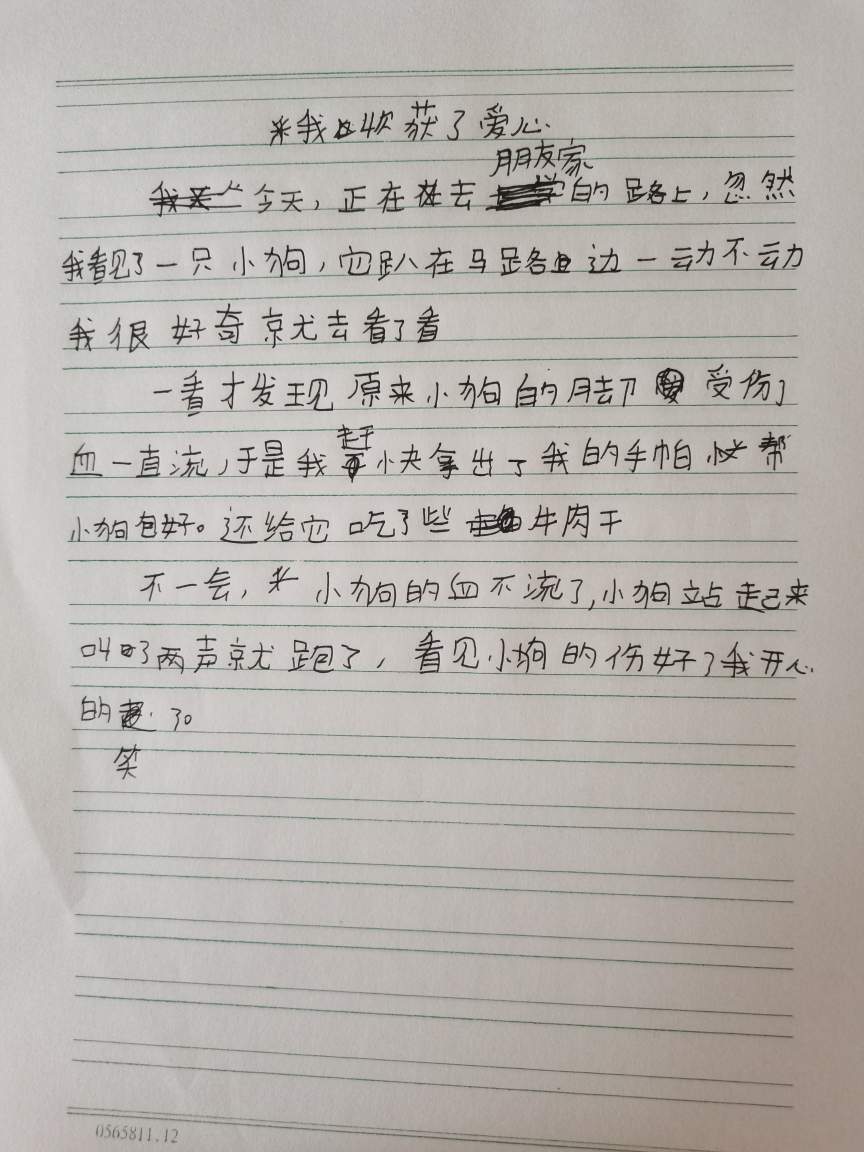 我收获了爱心
朋友家
今天，正在去的路上，忽然
我看见了一只小狗，它趴在马路边一动不动
我很好奇就去看了看
一看才发现原来小狗的脚受伤了
赶
血一直流，于是我快拿出了我的手帕帮
小狗包好。还给它吃了些牛肉干
不一会，小狗的血不流了，小狗站起来
叫了两声就跑了，看见小狗的伤好了我开心
的了。
笑
0565811.12